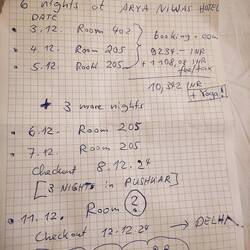 6 nights at ARYA NIWAS HOTEL
DATE
• 3.12. Room 402
booking.com
• 4.12. Room 205
9234.- INR
• 5.12. Room 205
+ 1108,08 INR
fee/tax
10,342 INR
+ Yoga!
+ 3 more nights
• 6.12. Room 205
• 7.12. Room 205
Checkout 8.12.24
[3 NIGHTS in PUSHKAR]
• 11.12. Room ?
Checkout 12.12.24 → DELHI